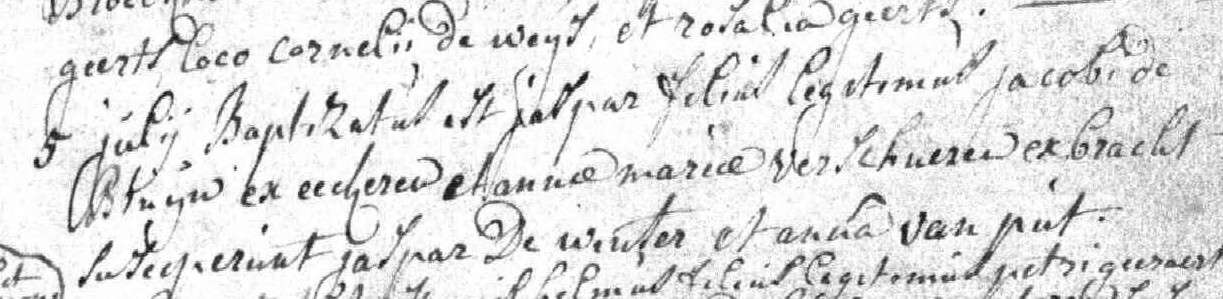 geerts loco cornelii de weijs, et rosalia geerts.
5 julij Baptizatus est jaspar filius legitimus jacobi de
Bruyn ex eecheren et annæ mariæ verschueren ex bracht
susceperunt jaspar De winter et anna van put.
filius legitimus petri